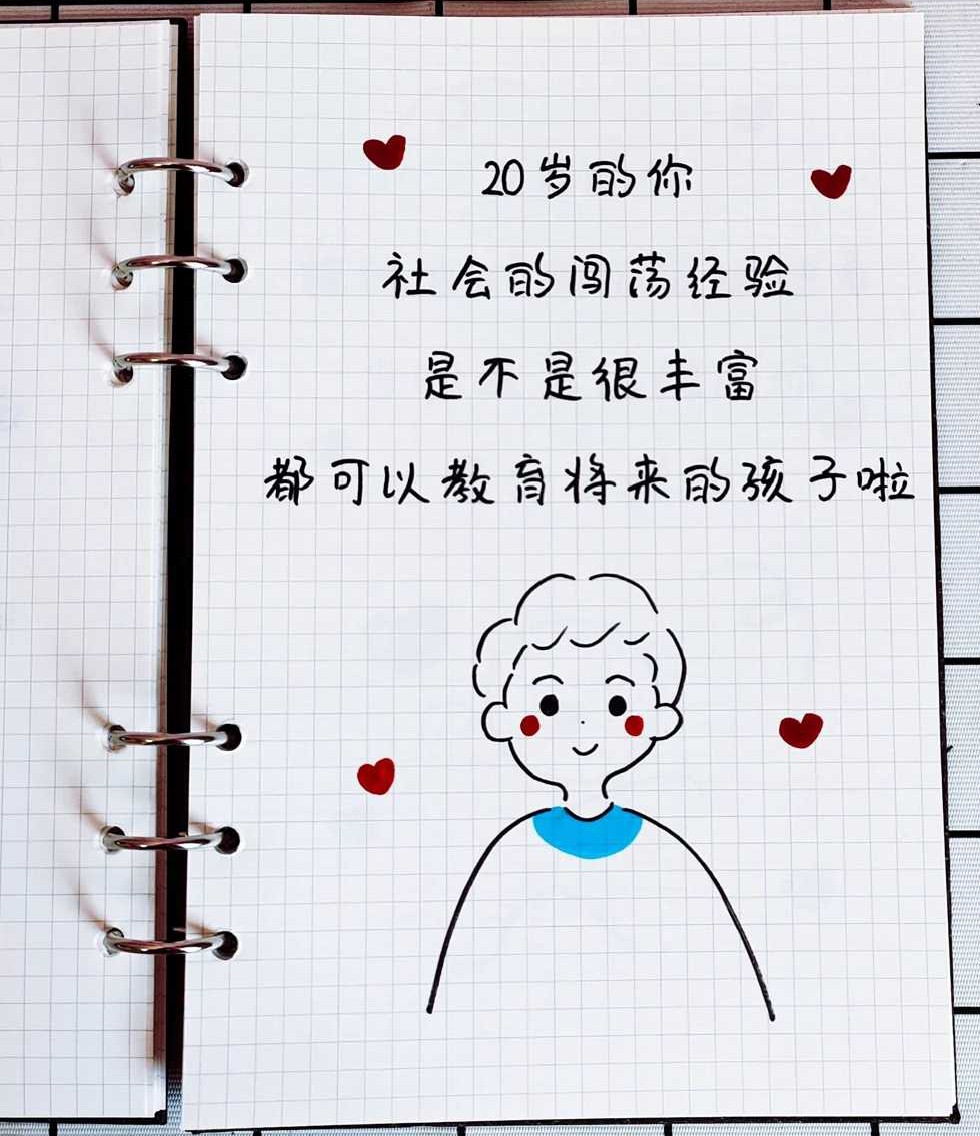 20岁的你
社会的闯荡经验
是不是很丰富
都可以教育将来的孩子啦